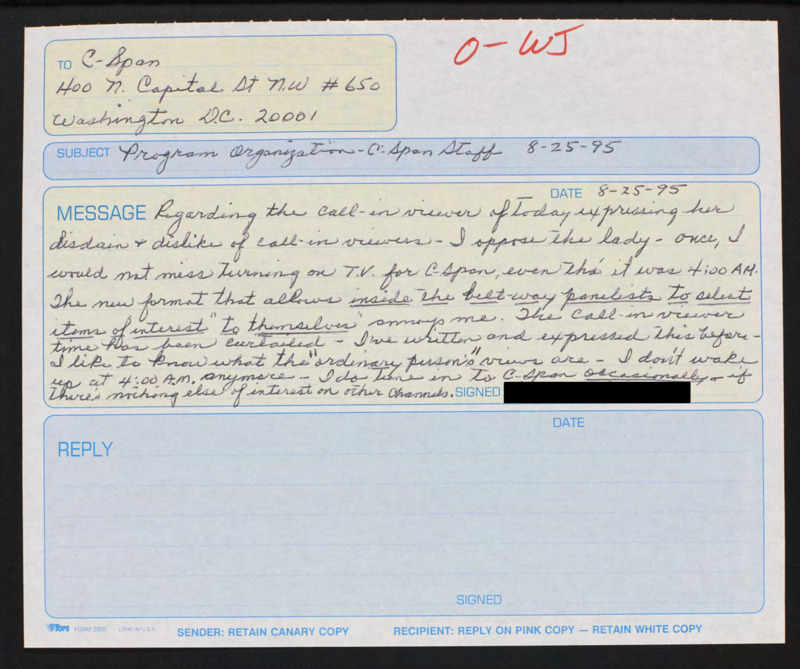 O-WJ
TO C-Span
400 N. Capital St N.W #650
Washington D.C. 20001
SUBJECT Program Organization - C-Span Staff 8-25-95
DATE 8-25-95
MESSAGE Regarding the call-in viewer of today expressing her
disdain + dislike of call-in viewers - I oppose the lady - once, I
would not miss turning on T.V. for C-Span, even tho' it was 4:00 AM.
The new format that allows inside the belt-way panelists to select
items of interest "to themselves" annoys me. The call-in viewer
time has been curtailed - I've written and expressed this before -
I like to know what the "ordinary person's" views are - I don't wake
up at 4:00 A.M. anymore - I do tune in to C-Span occasionally - if
there's nothing else of interest on other channels. SIGNED
DATE
REPLY
SIGNED
TOPS FORM 3801 LITHO IN U.S.A.
SENDER: RETAIN CANARY COPY RECIPIENT: REPLY ON PINK COPY — RETAIN WHITE COPY